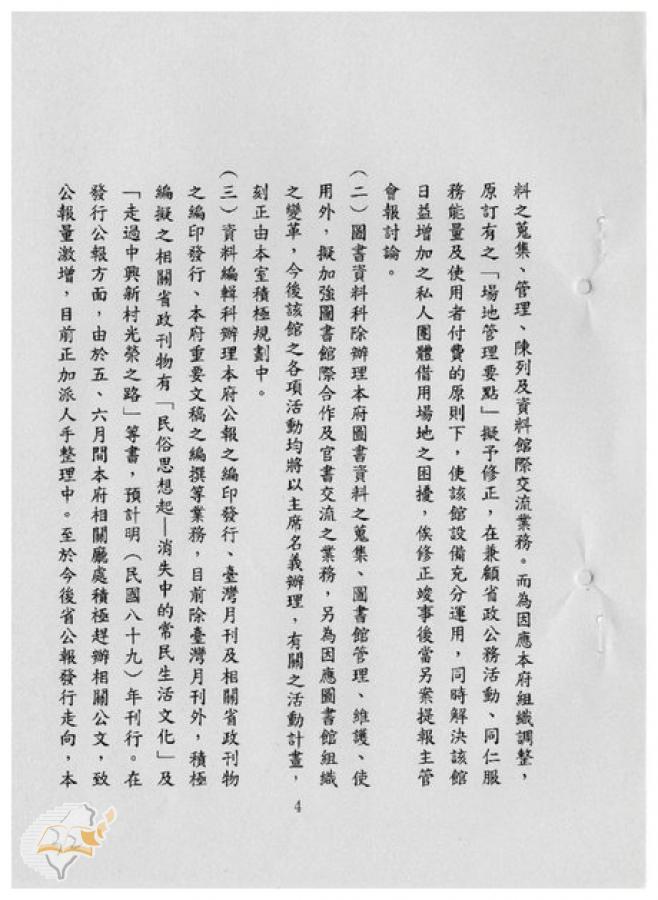 料之蒐集、管理、陳列及資料館際交流業務。而為因應本府組織調整，
原訂有之「場地管理要點」擬予修正，在兼顧省政公務活動、同仁服
務能量及使用者付費的原則下，使該館設備充分運用，同時解決該館
日益增加之私人團體借用場地之困擾，俟修正竣事後當另案提報主管
會報討論。
(二)圖書資料科除辦理本府圖書資料之蒐集、圖書館管理、維護、使
用外，擬加強圖書館際合作及官書交流之業務，另為因應圖書館組織
之變革，今後該館之各項活動均將以主席名義辦理，有關之活動計畫，
刻正由本室積極規劃中。
(三)資料編輯科辦理本府公報之編印發行、臺灣月刊及相關省政刊物
之編印發行、本府重要文稿之編撰等業務，目前除臺灣月刊外，積極
編擬之相關省政刊物有「民俗思想起—消失中的常民生活文化」及
「走過中興新村光榮之路」等書，預計明(民國八十九)年刊行。在
發行公報方面，由於五、六月間本府相關廳處積極趕辦相關公文，致
公報量激增，目前正加派人手整理中。至於今後省公報發行走向，本
4